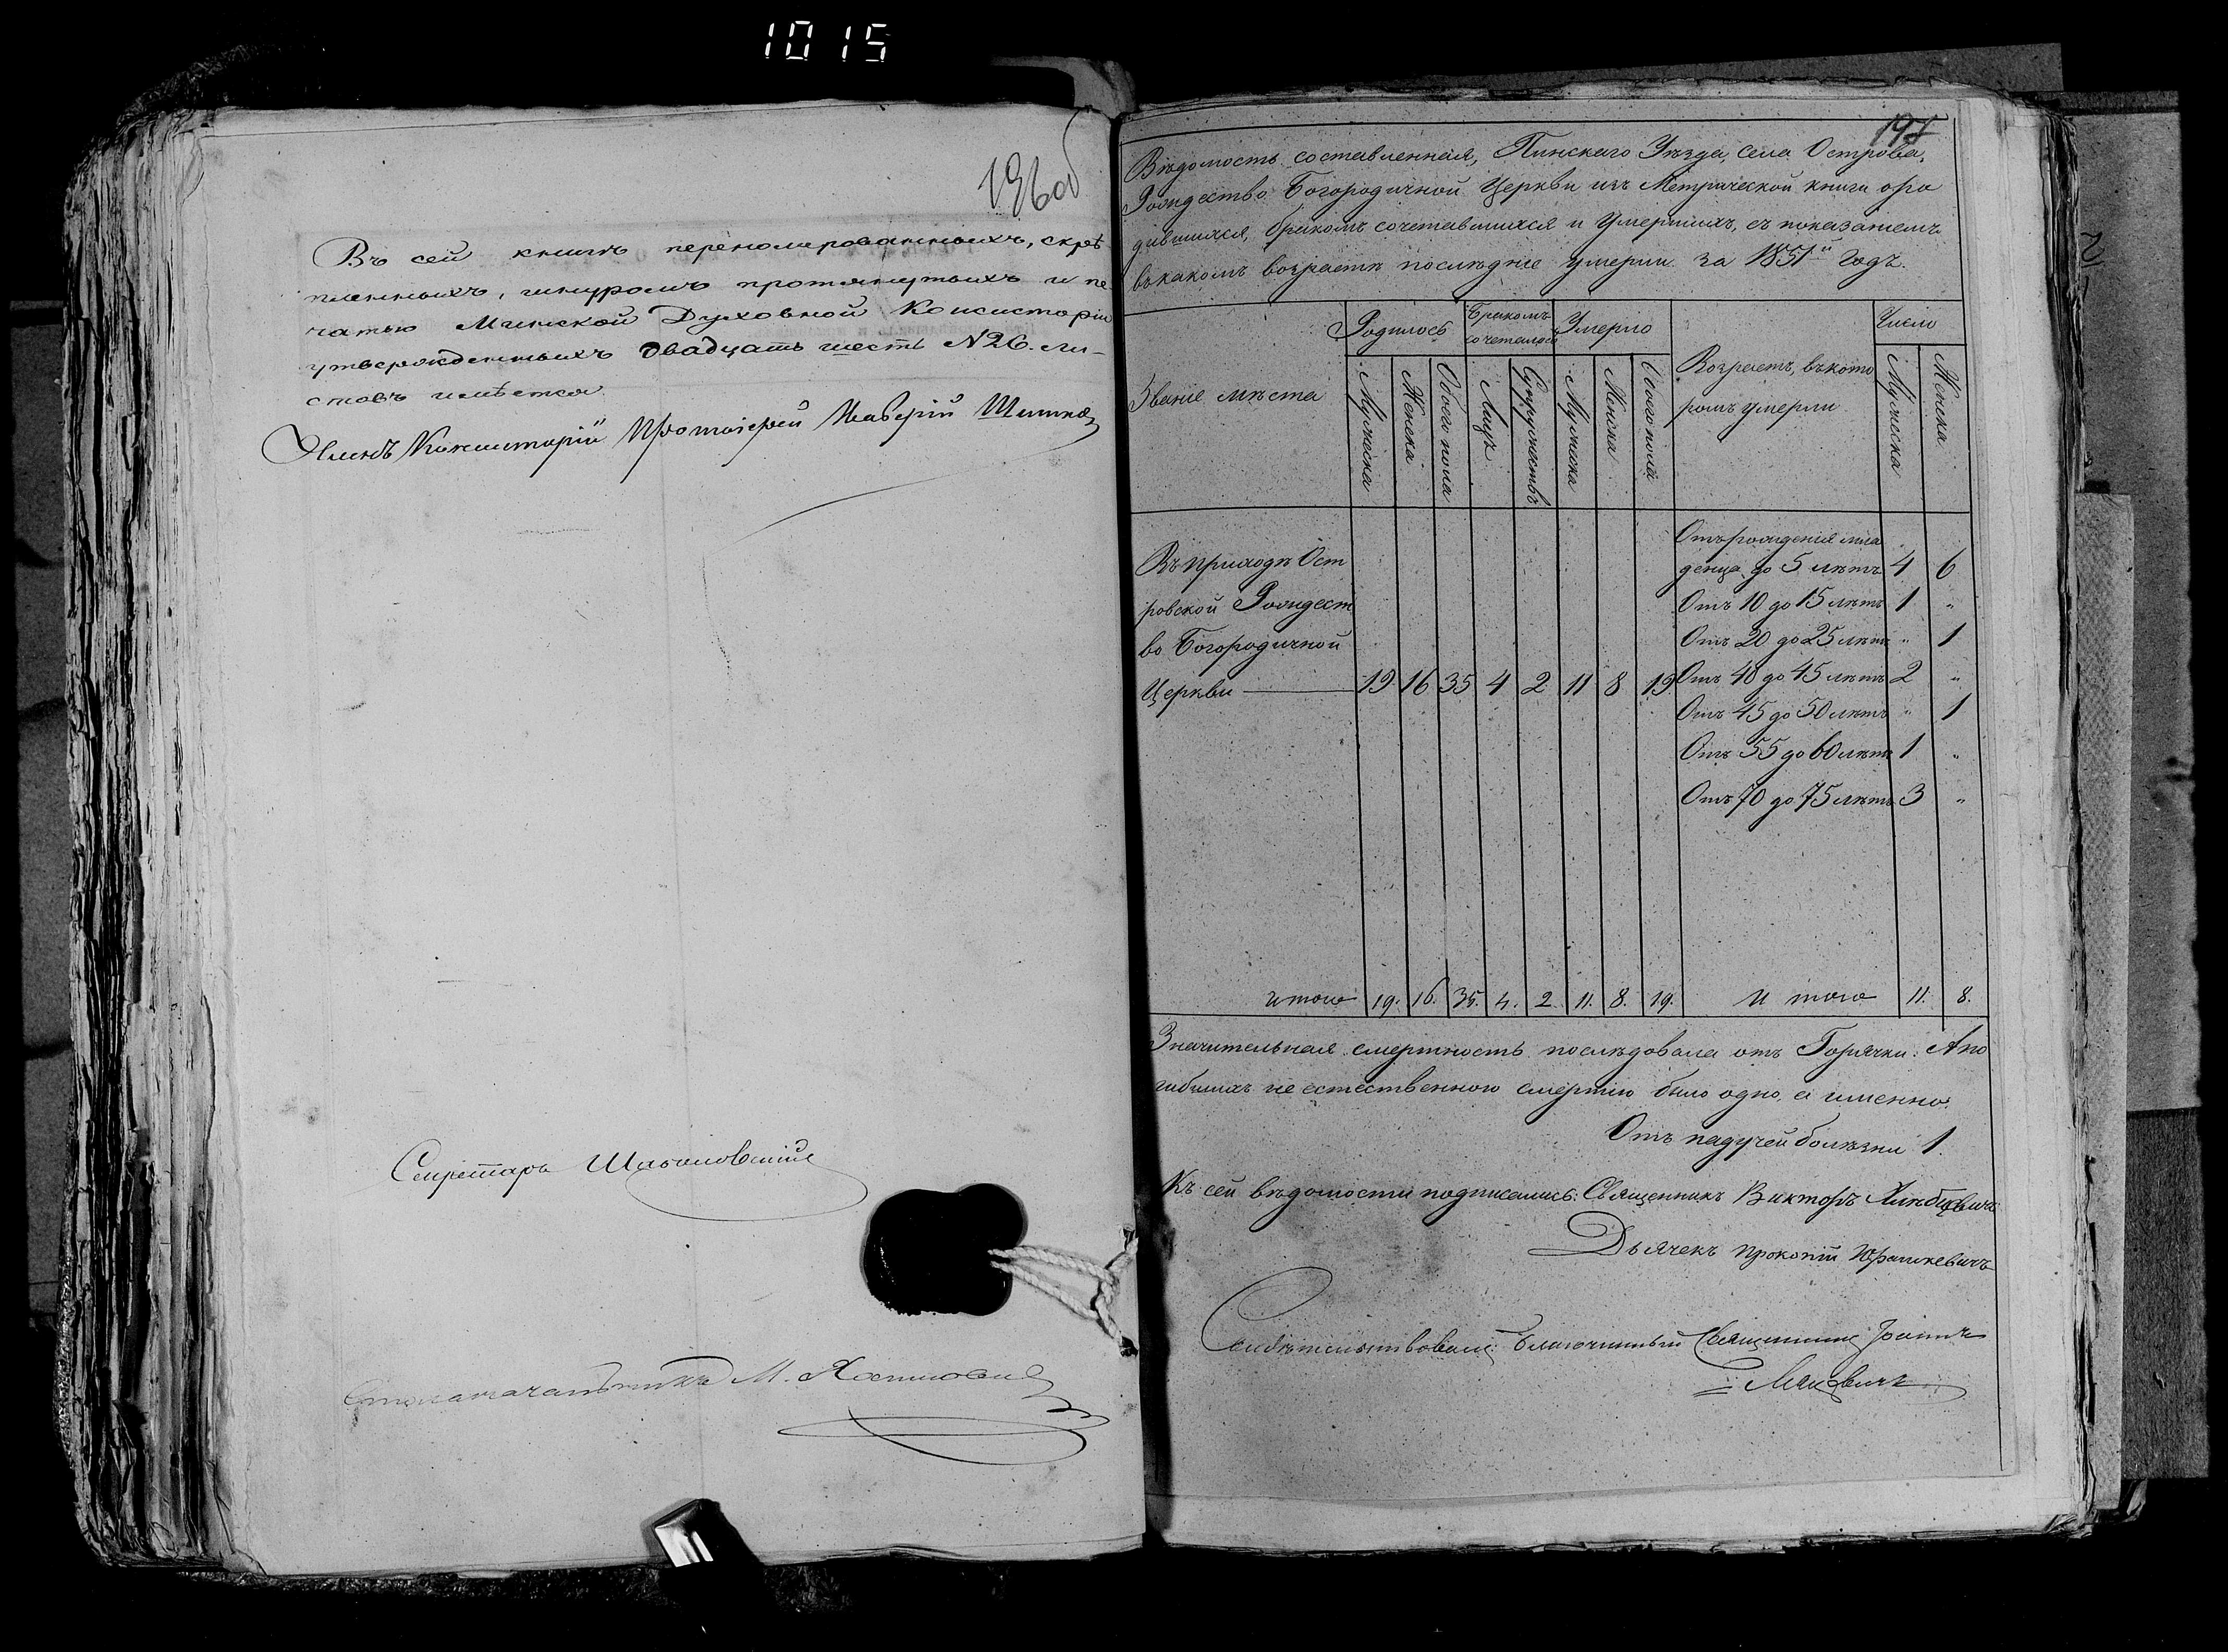 1015
196об
Въ сей книгѣ перенумерованныхъ, скрѣ
пленныхъ, шнуромъ протянутыхъ и пе
чатью Минской Духовной Консисторіи
утвержденныхъ двадцать шесть №26. ли-
стовъ имѣется.
Членъ Консисторіи Протоіерей
Секретарь
Столоначальникъ М.
197
Вѣдомость составленная, Пинскаго Уѣзда, села Острова,
Рождество Богородичной Церкви изъ Метрической книги оро
дившихся, бракомъ сочетавшихся и Умершихъ, съ показаніемъ
въ какомъ возрастѣ послѣдніе умерли за 1851й годъ.
Звание мѣста
Родилось
Бракомъ
сочеталось
Умерло
Возрастъ, въ кото
ромъ умерли
Число
Мужеска
Женска
Обоего пола
Лицъ
Супружествъ
Мужеска
Женска
Обоего пола
Мужеска
Женска
Въ приходѣ Ост
ровской Рождест
во Богородичной
Церкви 19 16 35 4 2 11 8 19
Отъ рожденія мла
денца до 5 лѣтъ 4 6
Отъ 10 до 15 лѣтъ 1 "
Отъ 20 до 25 лѣтъ " 1
Отъ 40 до 45 лѣтъ 2 "
Отъ 45 до 50 лѣтъ " 1
Отъ 55 до 60 лѣтъ 1 "
Отъ 70 до 75 лѣтъ 3 "
итого 19. 16. 35. 4. 2 11. 8. 19. И того 11. 8.
Значительная смертность послѣдовала отъ Горячки: А по
гибшихъ не естественною смертію было одно, а именно:
Отъ падучей болѣзни 1.
Къ сей вѣдомости подписались: Священникъ Викторъ
Дьячекъ Прокопій Юрашкевичъ
Свидѣтельствовалъ Благочинный Священникъ Іоаннъ